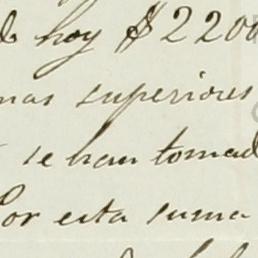 hoy $ 2200
superiores
se han tomad
Por esta suma